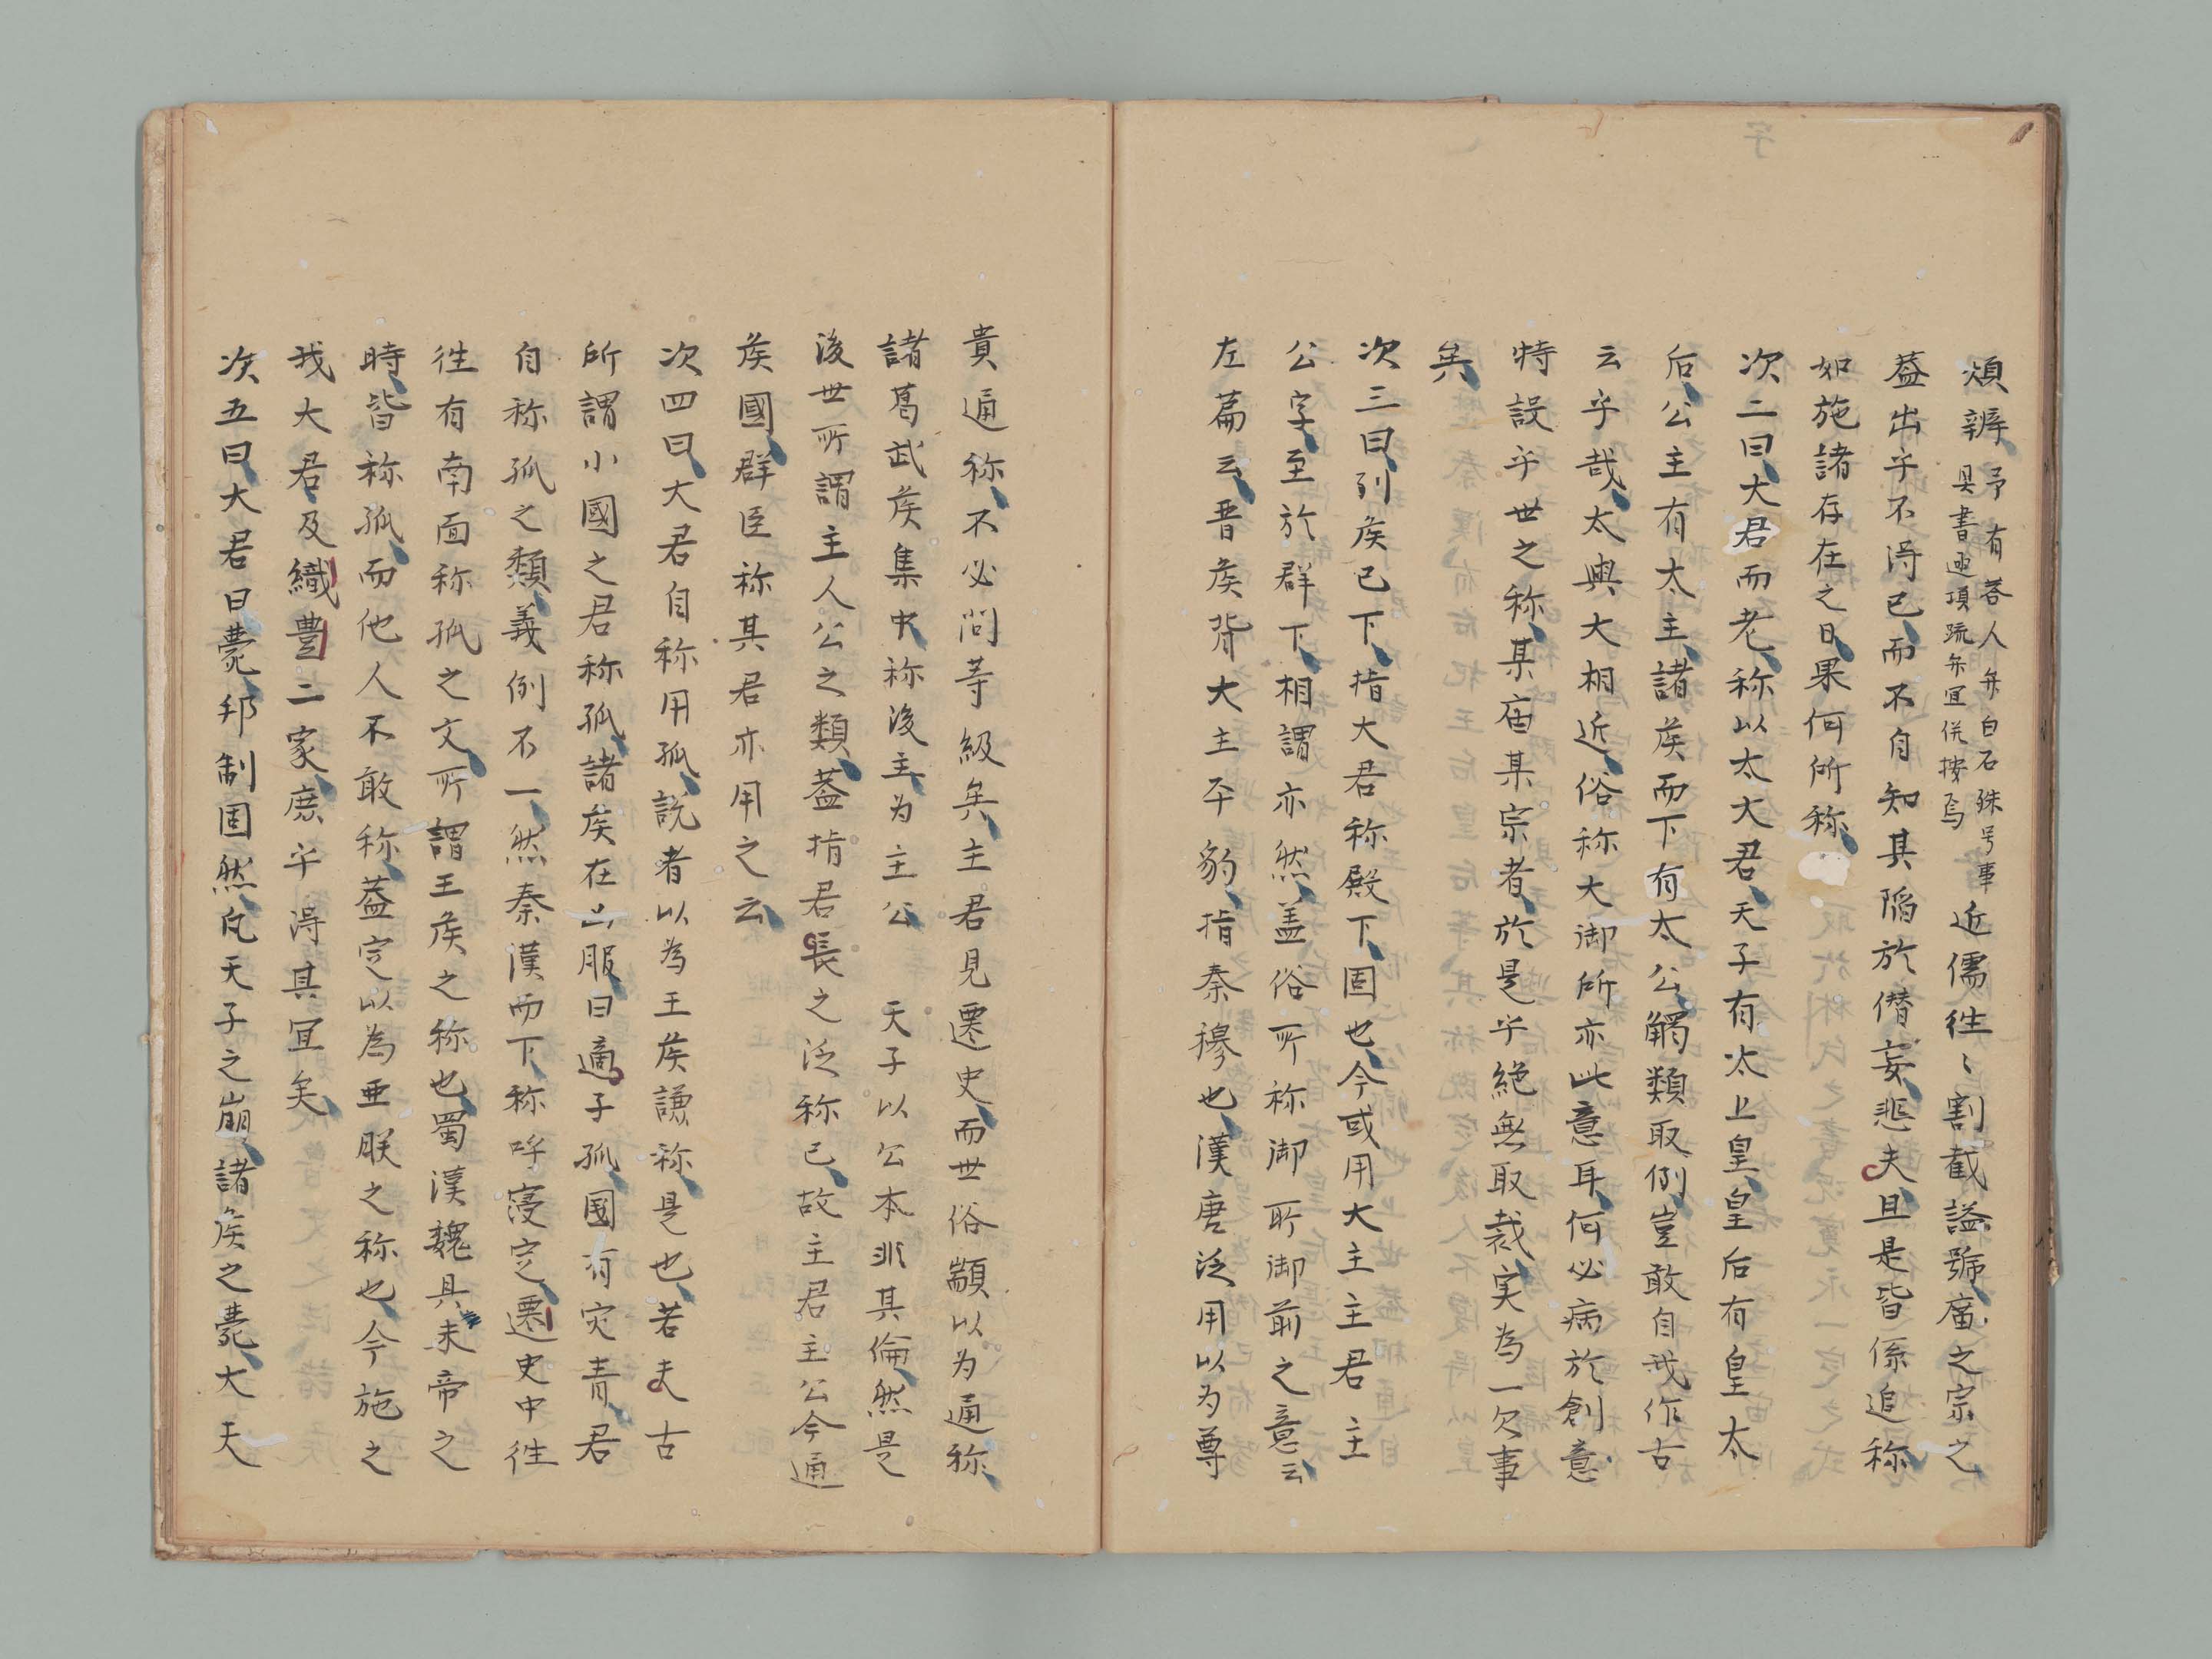 煩辨、予有答人弁白石殊号事具書逐項疏弁宜併按焉近儒徃〻割截謚號、廟之宗之
葢出乎不得已、而不自知其陥於僭妄、悲夫且是皆係追称
如施諸存在之日、果何所称、
次二曰、大君而老、称以太大君、天子有太上皇、皇后有皇太
后、公主有太主、諸矦而下有太公、觸類取例、豈敢自我作古
云乎哉、太與大相近、俗称大御所亦此意耳、何必病於創意
特設乎世之称、某庙某宗者、於是乎絶無取裁、実為一欠事
矣、
次三曰、列矦已下、指大君称殿下、固也、今或用大主主君主
公字、至於群下、相謂亦然、盖俗所称御所御前之意云、
左篇云、晋矦背大主平豹、指秦穆也、漢唐泛用以为尊
貴通称、不必問等級矣、主君見遷史、而世俗顓以为通称、
諸葛武矦集中、称後主、为主公、 天子以公本非其倫、然是
後世所謂主人公之類、葢指君長之泛称已、故主君主公今通
矦國、群臣称其君亦用之云、
次四曰、大君自称用孤、説者以為王矦謙称是也、若夫古
所謂小國之君称孤、諸矦在凶服曰適子孤、國有灾眚、君
自称孤之類、義例不一、然秦漢而下、称呼寖定、遷史中徃
徃有南面称孤之文、所謂王矦之称也、蜀漢魏具未帝之
時、皆称孤、而他人不敢称、葢定以為亜朕之称也、今施之
我大君及織豊二家、庶乎得其宜矣、
次五曰、大君曰薨、邦制固然、凡天子之崩、諸矦之薨、大夫